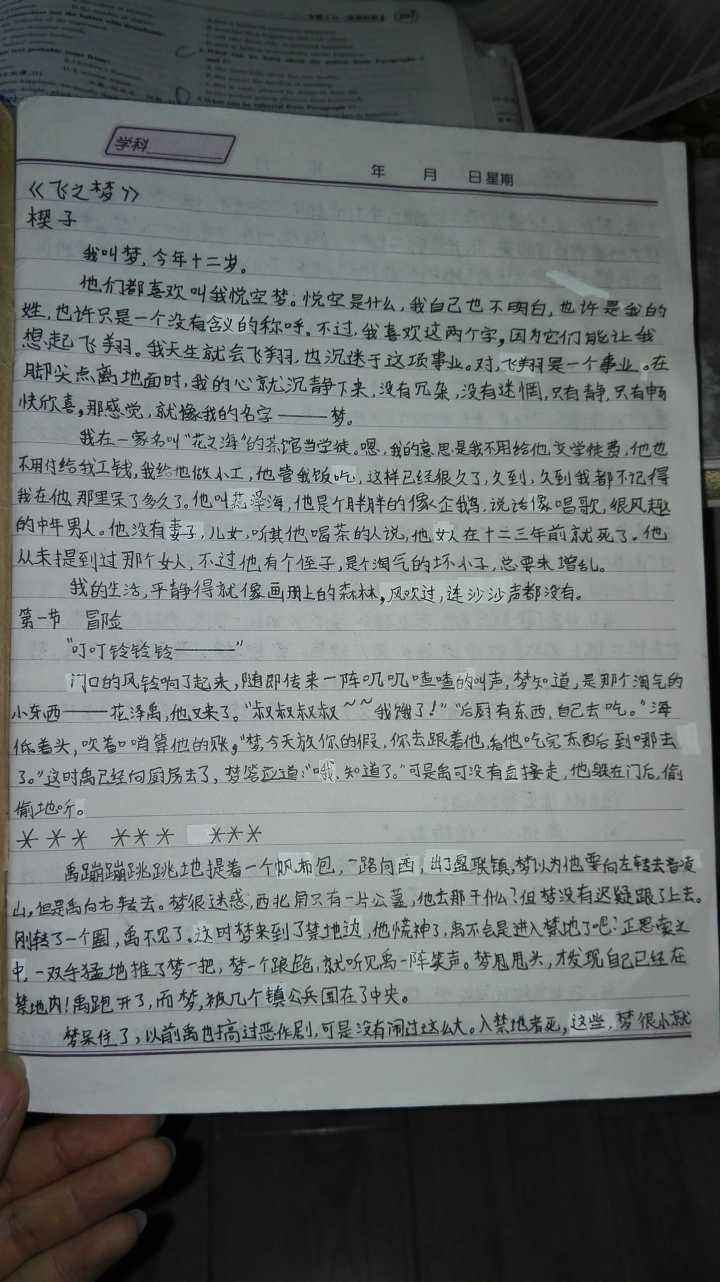 学科
年 月 日 星期
《飞之梦》
楔子
我叫梦，今年十二岁。
他们都喜欢叫我悦空梦。悦空是什么，我自己也不明白，也许是我的
姓，也许只是一个没有含义的称呼。不过，我喜欢这两个字，因为它们能让我
想起飞翔。我天生就会飞翔，也沉迷于这项事业。对，飞翔是一个事业。在
脚尖点离地面时，我的心就沉静下来，没有冗杂，没有迷惘，只有静，只有畅
快欣喜，那感觉，就像我的名字——梦。
我在一家名叫“花之海”的茶馆当学徒。嗯，我的意思是我不用给他交学徒费，他也
不用付给我工钱，我给他做小工，他管我饭吃，这样已经很久了，久到，久到我都不记得
我在他那里呆了多久了。他叫花泽海，他是个胖胖的像企鹅，说话像唱歌，很风趣
的中年男人。他没有妻子，儿女，听其他喝茶的人说，他女人在十二三年前就死了。他
从未提到过那个女人，不过他有个侄子，是个淘气的坏小子，总要来增乱。
我的生活，平静得就像画册上的森林，风吹过，连沙沙声都没有。
第一节 冒险
“叮叮铃铃铃———”
门口的风铃响了起来，随即传来一阵叽叽喳喳的叫声，梦知道，是那个淘气的
小东西——花泽禹，他又来了。“叔叔叔叔~~我饿了！”“后厨有东西，自己去吃。”海
低着头，吹着口哨算他的账，“梦，今天放你的假，你去跟着他，看他吃完东西后到哪去
了。”这时禹已经向厨房去了，梦答应道：“哦，知道了。”可是禹可没有直接走，他躲在门后，偷
偷地听。
*** *** ***
禹蹦蹦跳跳地提着一个帆布包，一路向西，出了盈联镇，梦以为他要向左转去普凌
山，但是禹向右转去。梦很迷惑，西北角只有一片公墓，他去那干什么？但梦没有迟疑跟了上去。
刚转了一个圈，禹不见了。这时梦来到了禁地边，他慌神了，禹不会是进入禁地了吧？正思索之
中，一双手猛地推了梦一把，梦一个踉跄，就听见禹一阵笑声。梦甩甩头，才发现自己已经在
禁地内！禹跑开了，而梦，被几个镇公兵围在了中央。
梦呆住了，以前禹也搞过恶作剧，可是没有闹过这么大。入禁地者死，这些，梦很小就